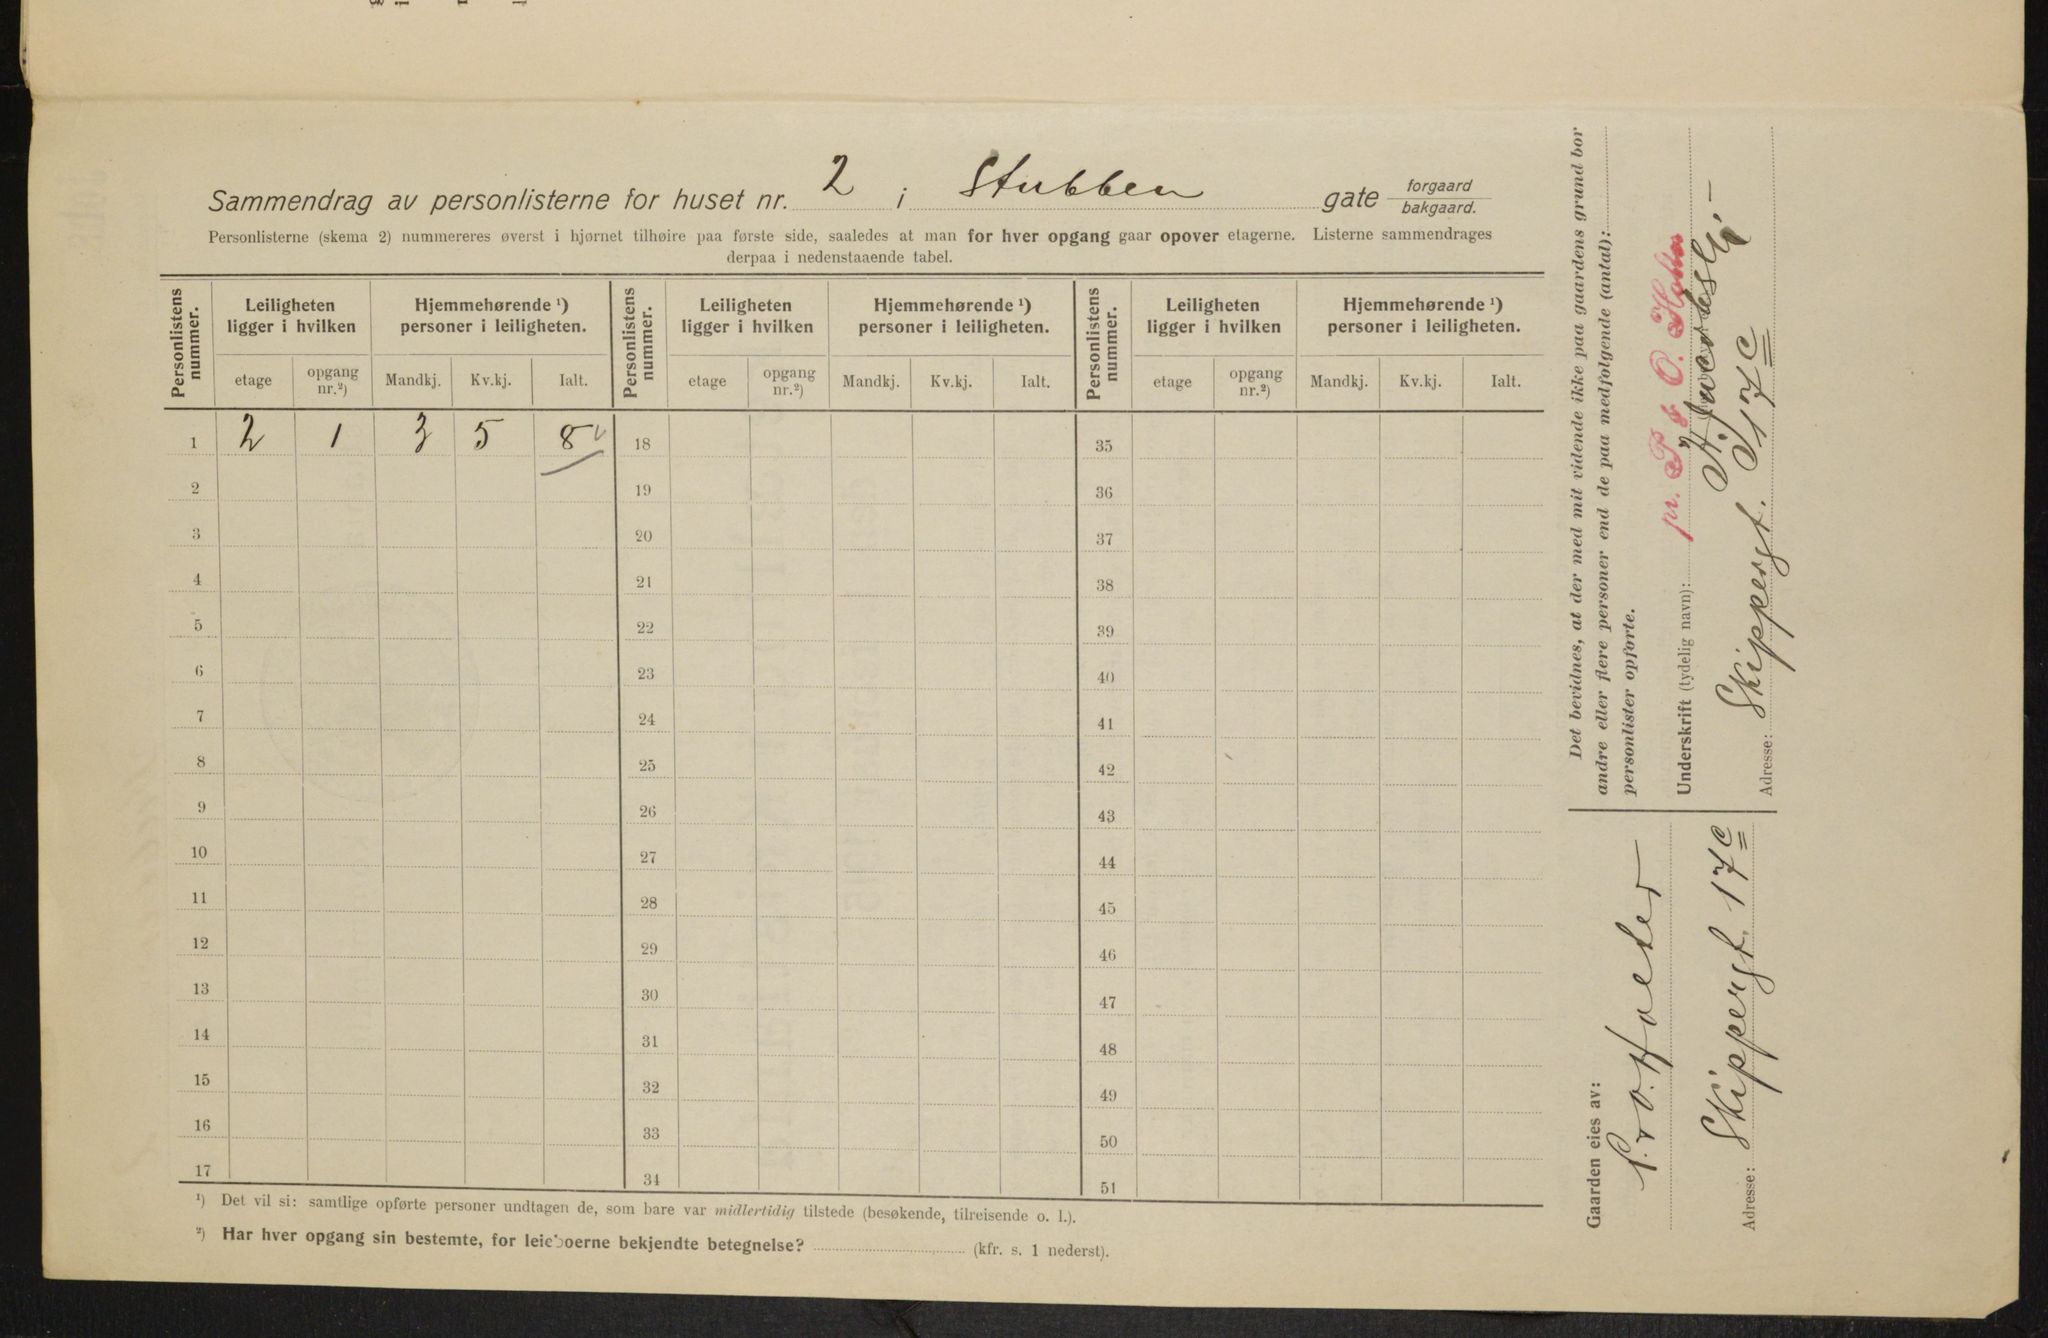 Sammendrag av personlisterne for huset nr. 2 i Stubben gate forgaard bakgaard.
Personlisterne (skema 2) nummereres øverst i hjørnet tilhøire paa første side, saaledes at man for hver opgang gaar opover etagerne. Listerne sammendrages
derpaa i nedenstaaende tabel.
Personlistens nummer. Leiligheten ligger i hvilken Hjemmehørende ¹) personer i leiligheten. Personlistens nummer. Leiligheten ligger i hvilken Hjemmehørende ¹) personer i leiligheten. Personlistens nummer. Leiligheten ligger i hvilken Hjemmehørende ¹) personer i leiligheten.
etage opgang nr.²) Mandkj. Kv.kj. Ialt. etage opgang nr.²) Mandkj. Kv.kj. Ialt. etage opgang nr.²) Mandkj. Kv.kj. Ialt.
1 2 1 3 5 8 18 35
2 19 36
3 20 37
4 21 38
5 22 39
6 23 40
7 24 41
8 25 42
9 26 43
10 27 44
11 28 45
12 29 46
13 30 47
14 31 48
15 32 49
16 33 50
17 34 51
¹) Det vil si: samtlige opførte personer undtagen de, som bare var midlertidig tilstede (besøkende, tilreisende o. l.).
²) Har hver opgang sin bestemte, for leieboerne bekjendte betegnelse? (kfr. s. 1 nederst).
Det bevidnes, at der med mit vidende ikke paa gaardens grund bor
andre eller flere personer end de paa medfølgende (antal):
personlister opførte.
Underskrift (tydelig navn): pr. P & O. Holter
Adresse: Skippergt. 17c
Gaarden eies av:
P. & O. Holter
Adresse: Skippergt. 17c